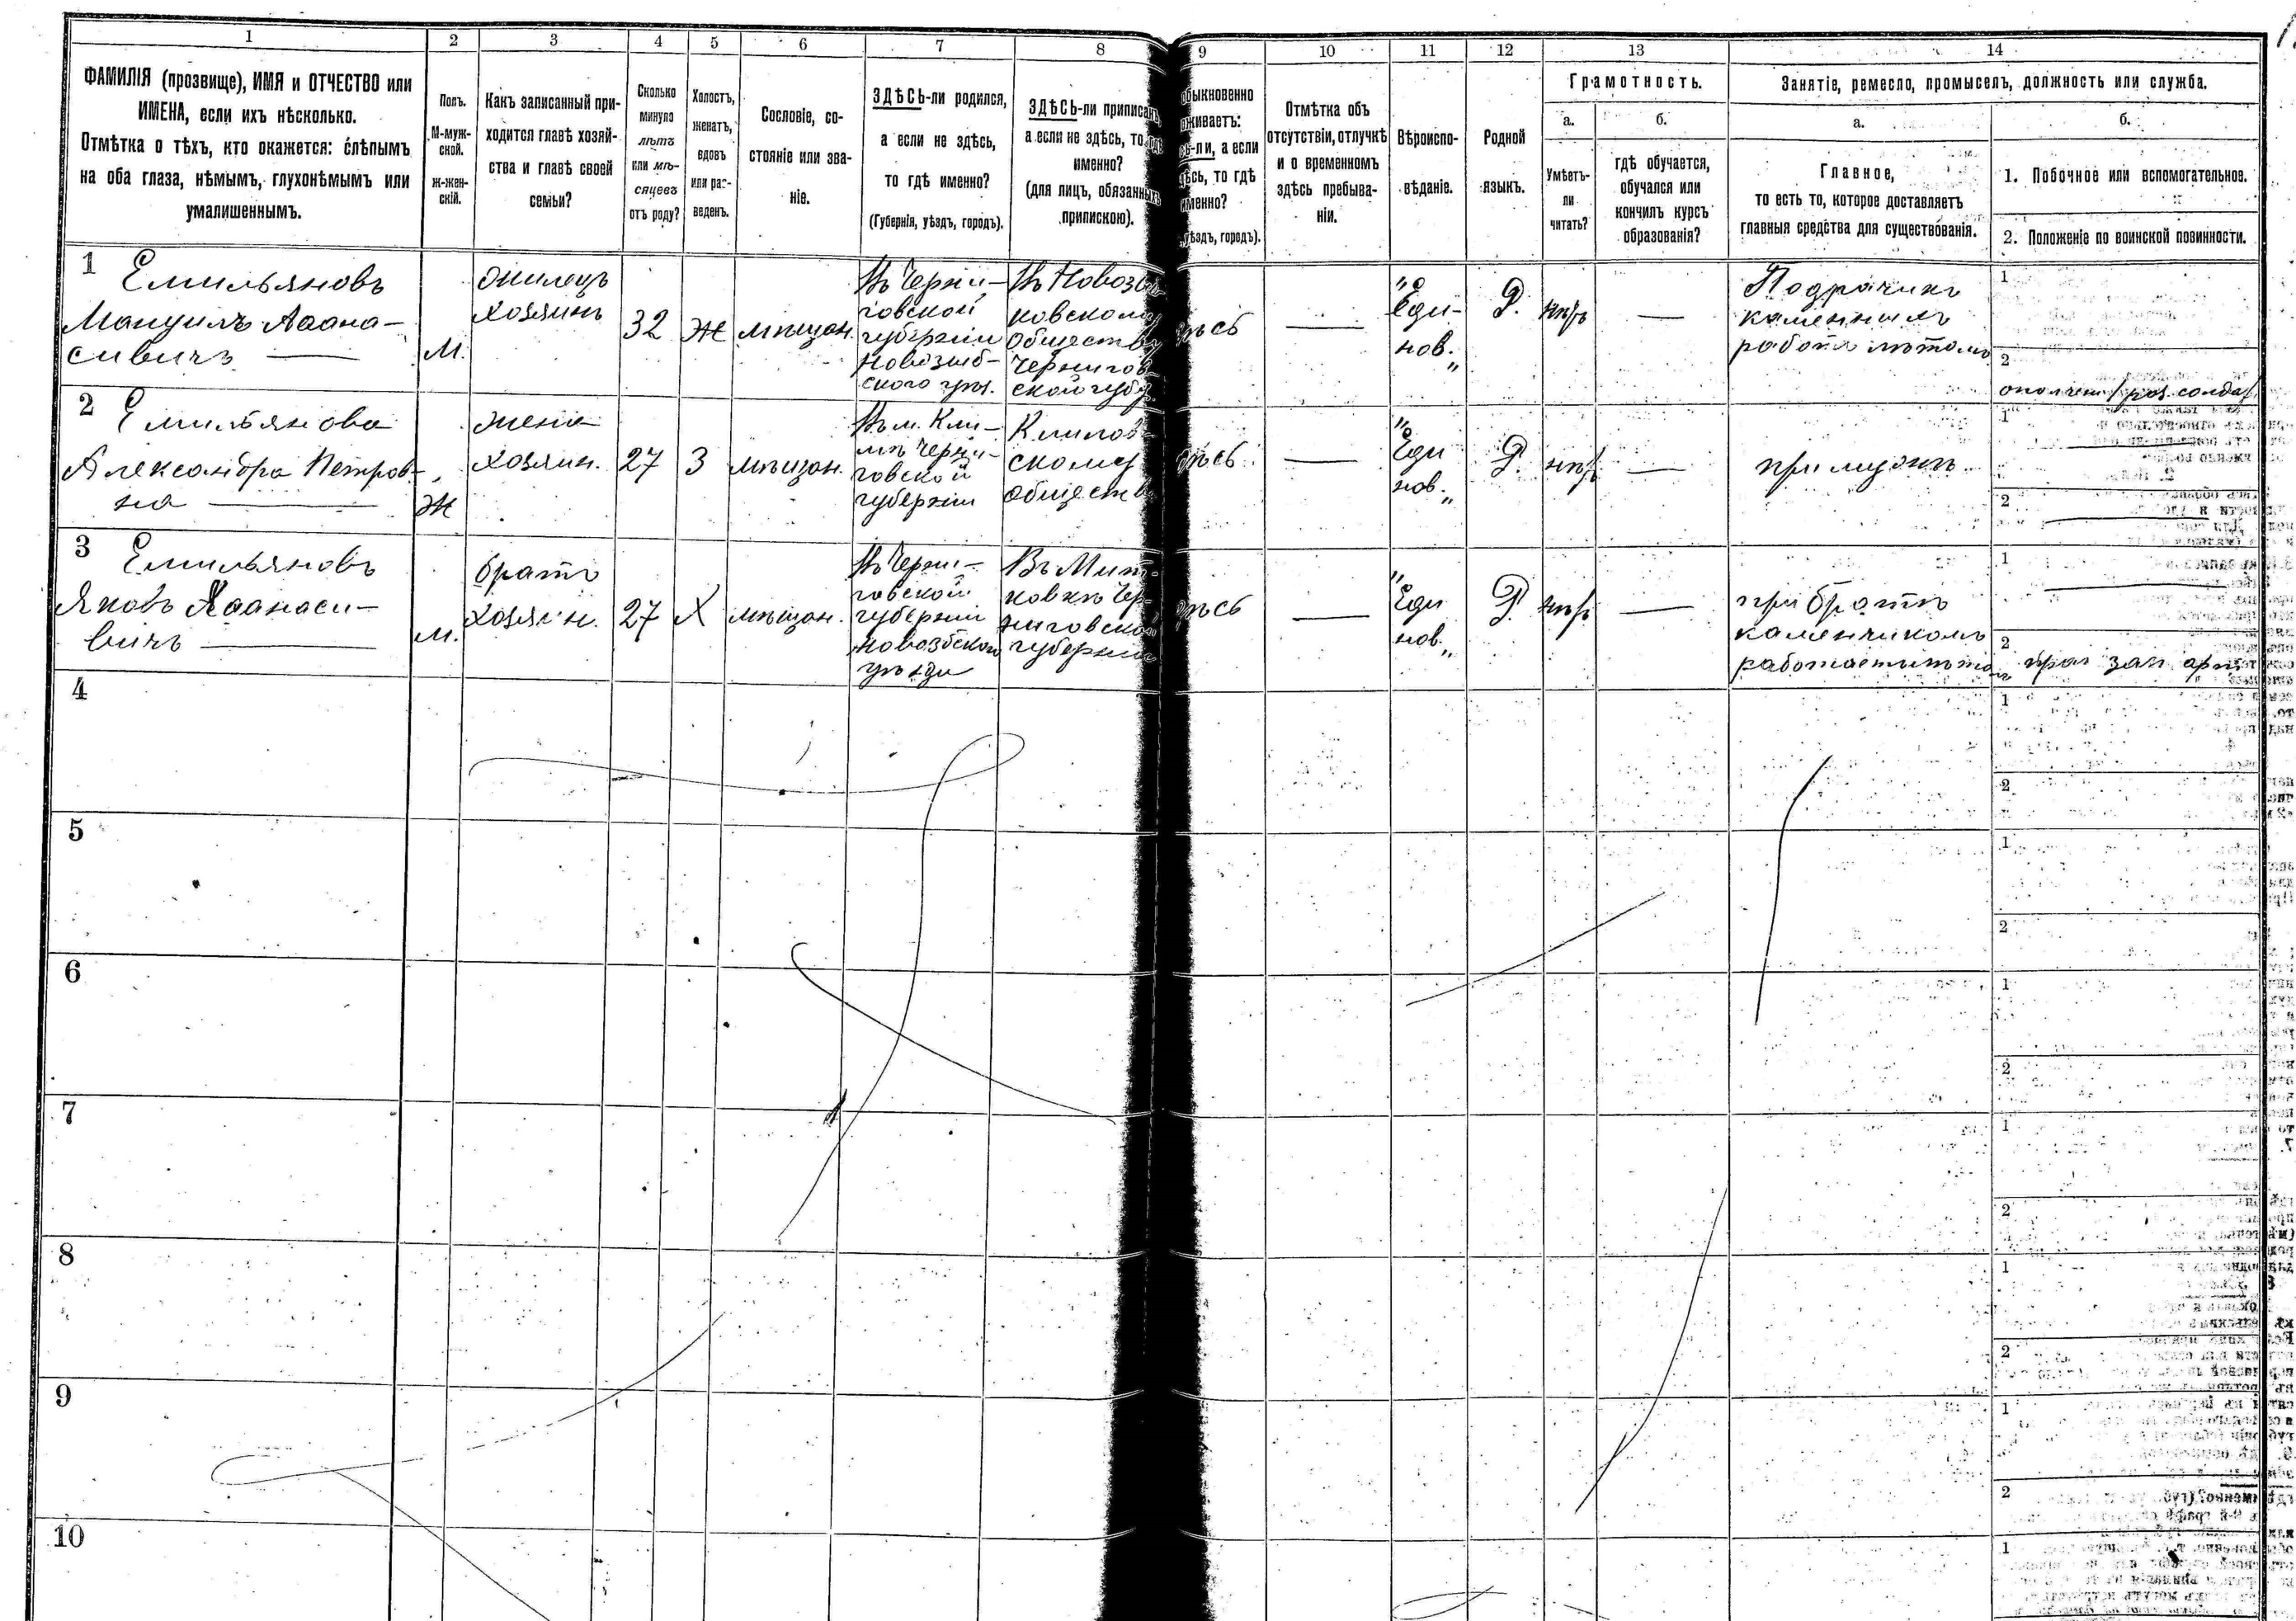 1 2 3 4 5 6 7 8 9 10 11 12 13 14
ФАМИЛІЯ (прозвище), ИМЯ и ОТЧЕСТВО или
ИМЕНА, если ихъ нѣсколько.
Отмѣтка о тѣхъ, кто окажется: слѣпымъ
на оба глаза, нѣмымъ, глухонѣмымъ или
умалишеннымъ.
Полъ.
М-муж-
ской.
ж-жен-
скій.
Какъ записанный при-
ходится главѣ хозяй-
ства и главѣ своей
семьи?
Сколько
минуло
лѣтъ
или мѣ-
сяцевъ
отъ роду?
Холостъ,
женатъ,
вдовъ
или раз-
веденъ.
Сословіе, со-
стояніе или зва-
ніе.
ЗДѢСЬ-ли родился,
а если не здѣсь,
то гдѣ именно?
(Губернія, уѣздъ, городъ).
ЗДѢСЬ-ли приписанъ,
а если не здѣсь, то гдѣ
именно?
(для лицъ, обязанныхъ
припискою).
быкновенно
живаетъ:
сь-ли, а если
здѣсь, то гдѣ
именно?
уѣздъ, городъ).
Отмѣтка объ
отсутствіи, отлучкѣ
и о временномъ
здѣсь пребыва-
ніи.
Вѣроиспо-
вѣданіе.
Родной
языкъ.
Грамотность.
а. б.
Умѣетъ-
ли
читать?
гдѣ обучается,
обучался или
кончилъ курсъ
образованія?
Занятіе, ремесло, промыселъ, должность или служба.
а. б.
Главное,
то есть то, которое доставляетъ
главныя средства для существованія.
1. Побочное или вспомогательное.
2. Положеніе по воинской повинности.
1 Емильяновъ
Мануилъ Аѳана-
сивичъ
М.
жилецъ
хозяинъ
32
Ж
мѣщан.
Въ Черни-
говской
губерніи
Новозыб-
ского уѣз.
Въ Новозы
ковскому
Обществу
Чернигов
ской губ
ѣсь
"Еди-
нов."
Р.
нѣт
Подрячикъ
каменныхъ
работъ лѣтомъ
1
2
ополчен
2 Емильянова
Александра Петров-
на
Ж
жена
хозяин.
27
З
мѣщан.
Въ м. Кли-
мъ Черни-
говской
губерніи
Климов
скому
обществ
ѣсь
"Еди
нов."
Р.
нѣт
при мужѣ
1
2
3 Емильяновъ
Яковъ Аѳанаси-
вичъ
М.
братъ
хозяин.
27
Х
мѣщан.
Въ Черни-
говской
губерніи
Новозбской
уѣзди
Въ Мит
ковкѣ Чер
ниговско
губерніи
ѣсь
"Еди
нов."
Р.
нѣт
при братѣ
каменчикомъ
1
2
4
1
2
5
1
2
6
1
2
7
1
2
8
1
2
9
1
2
10
1